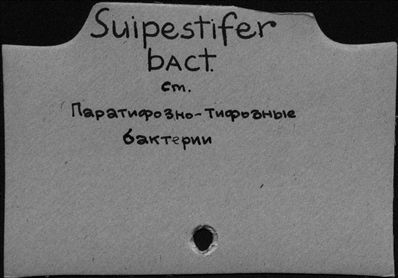 Suipestifer
bact.
ст.
Паратифозно-тифозные
бактерии